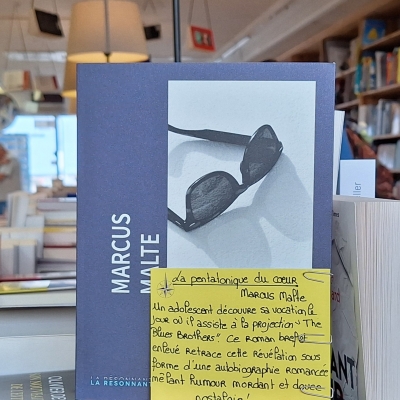 MARCUS
MALTE
La pentatonique du cœur
Marcus Malte
Un adolescent découvre sa vocation le
jour où il assiste à la projection "The
Blues Brothers". Ce roman bref et
enlevé retrace cette révélation sous
forme d'une autobiographie romancée
mêlant humour mordant et douce
nostalgie!
LA RESONNANT